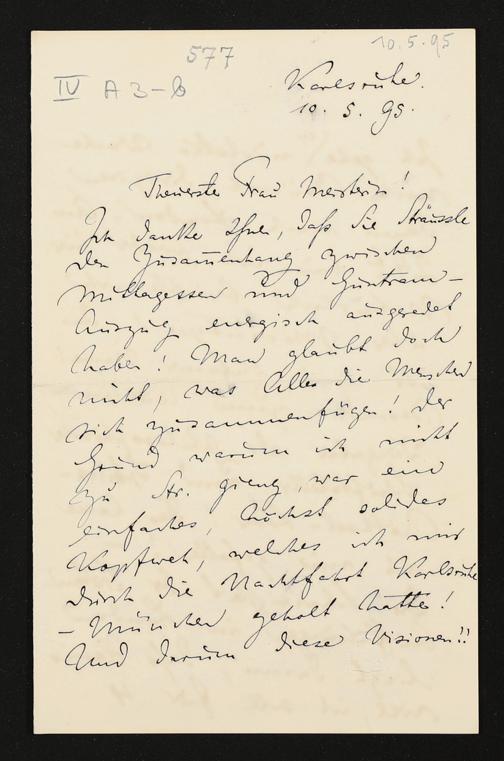 577
10.5.95
IV A 3-6
Karlsruhe.
10. 5. 95.
Theuerste Frau Meisterin!
Ich danke Ihnen, daß Sie Sträussle
den Zusammenhang zwischen
Mittagessen und Guntram-
Auszug energisch ausgeredet
haben! Man glaubt doch
nicht, was Alles die Menschen
sich zusammenfügen! Der
Grund warum ich nicht
zu Str. gieng, war ein
einfaches, höchst solides
Kopfweh, welches ich mir
durch die Nachtfahrt Karlsruhe
- München geholt hatte!
Und darum diese Visionen!!